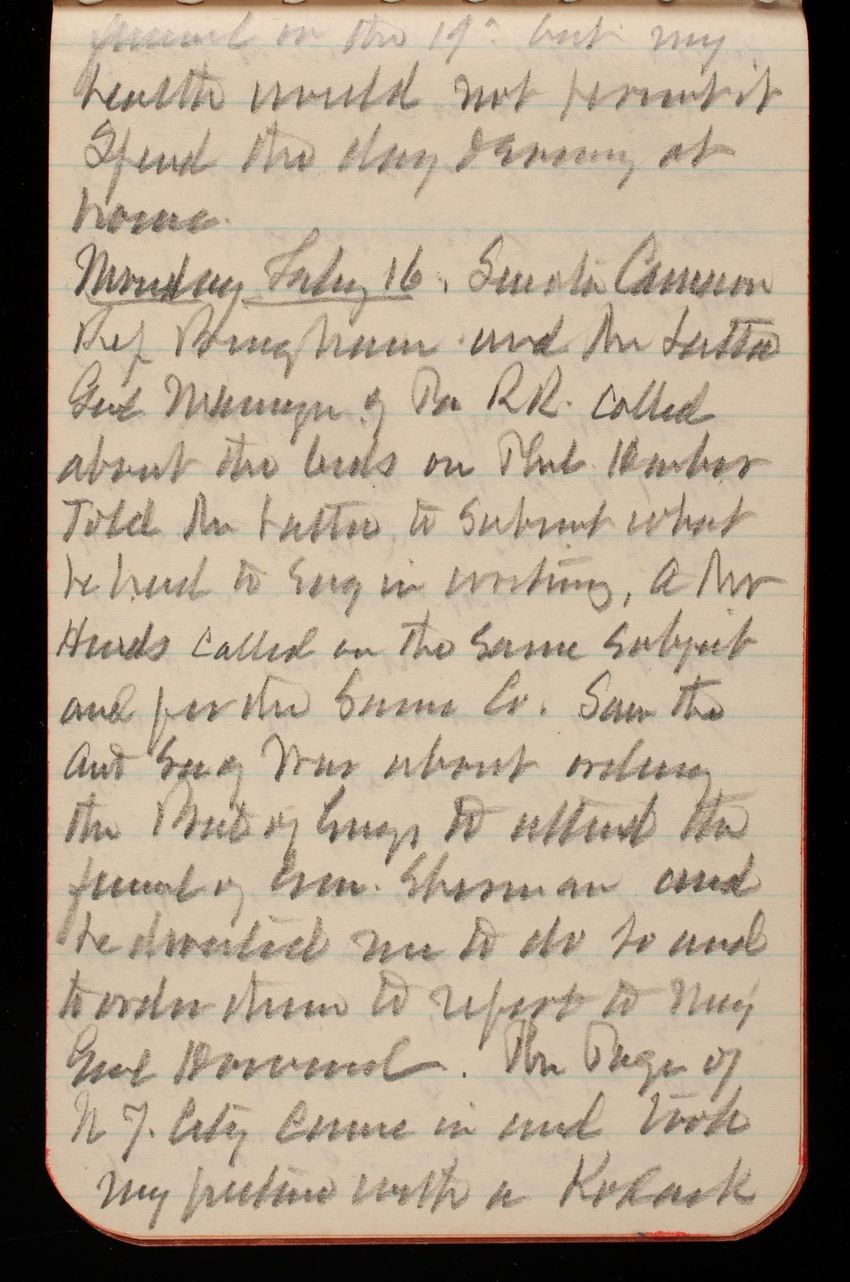 funeral on the 19" but my
health would not permit it
Spend the day at
home.
Monday Feby 16. Senator Cameron
Rep Bingham and Mr Latta
Genl Manager of Pa RR. called
about the bids on Phil. Harbor
Told Mr Latta to submit what
he had to say in writing, A Mr
Hinds called on the same subject
and for the same Co. Saw the
Act Sec of War about ordering
the Batt of Engrs to attend the
funeral of Gen. Sherman and
he directed me to do so and
to order them to report to Maj
Genl Howard. Mr Page of
N Y. City came in and took
my picture with a Kodack